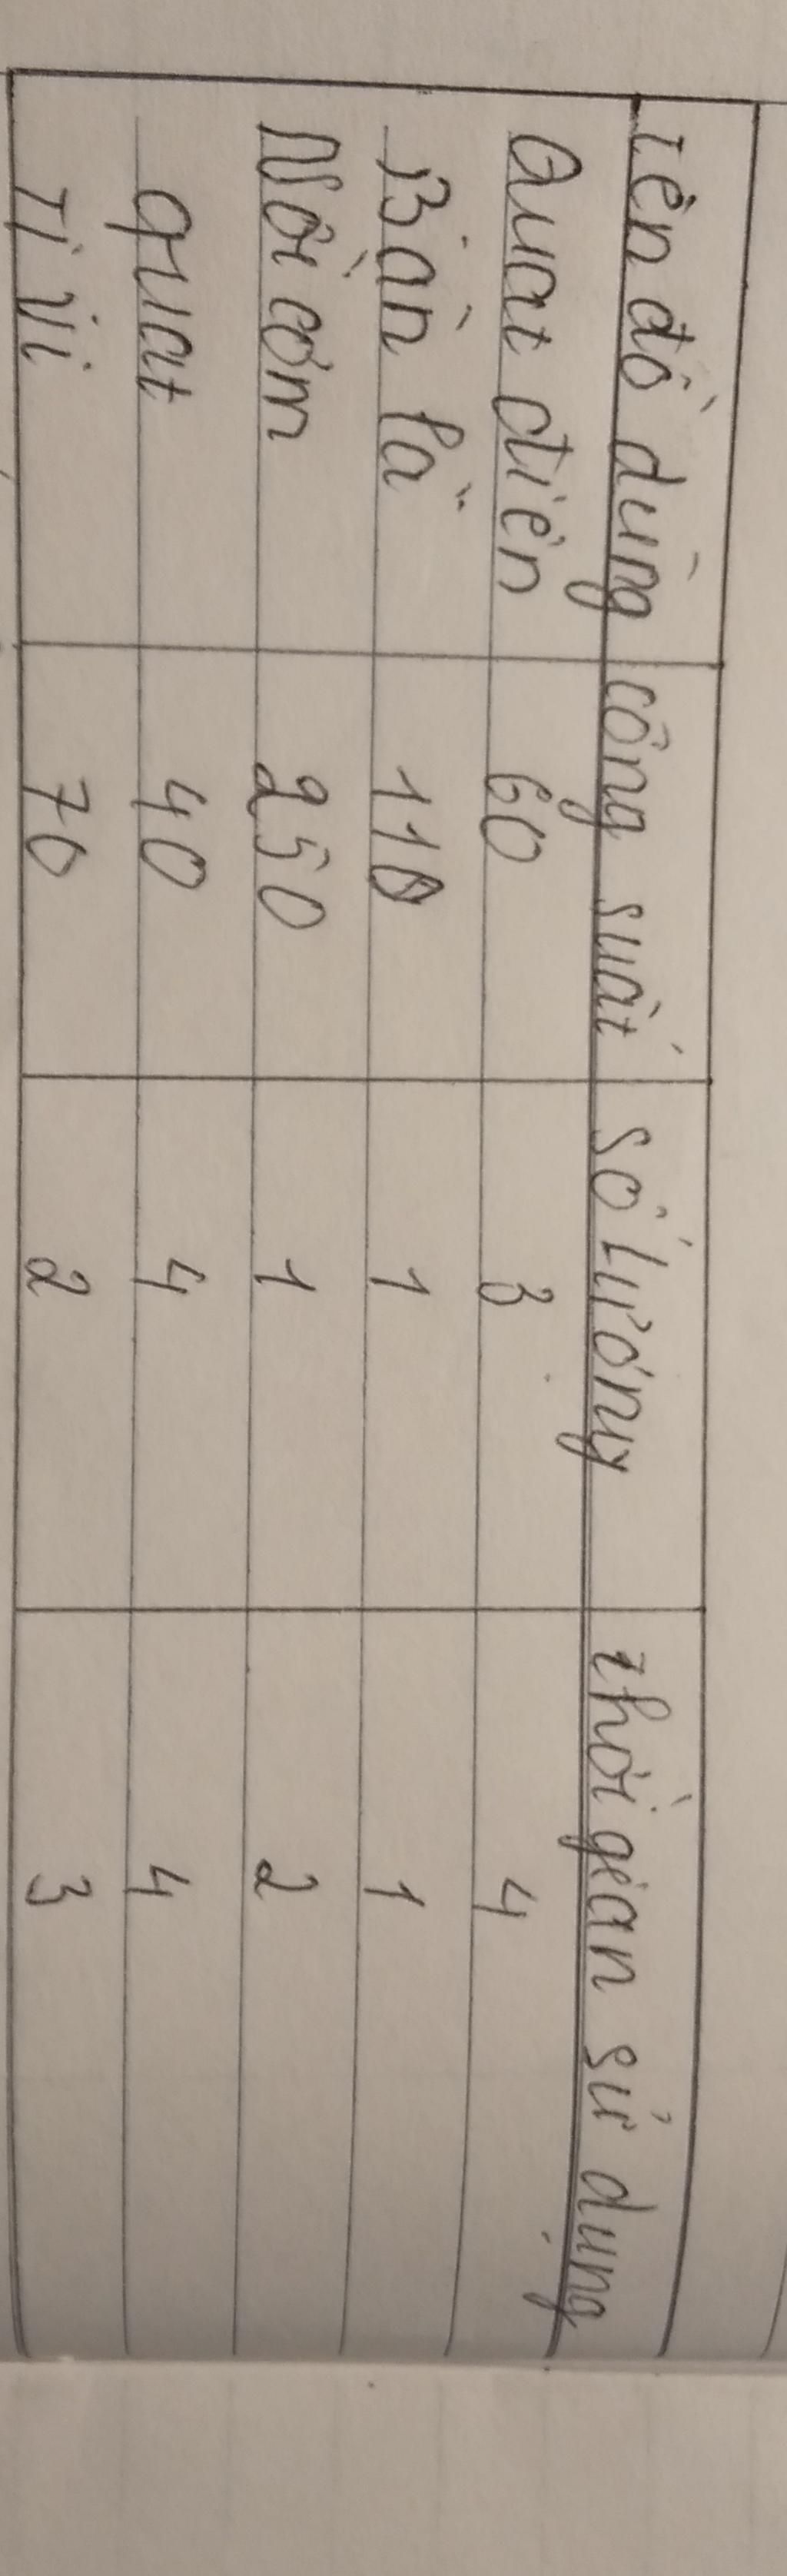 Tên đồ dùng công suất số lượng thời gian sử dụng
Quạt điện 60 3 4
Bàn là 110 1 1
Nồi cơm 250 1 2
quạt 40 4 4
Ti vi 70 2 3